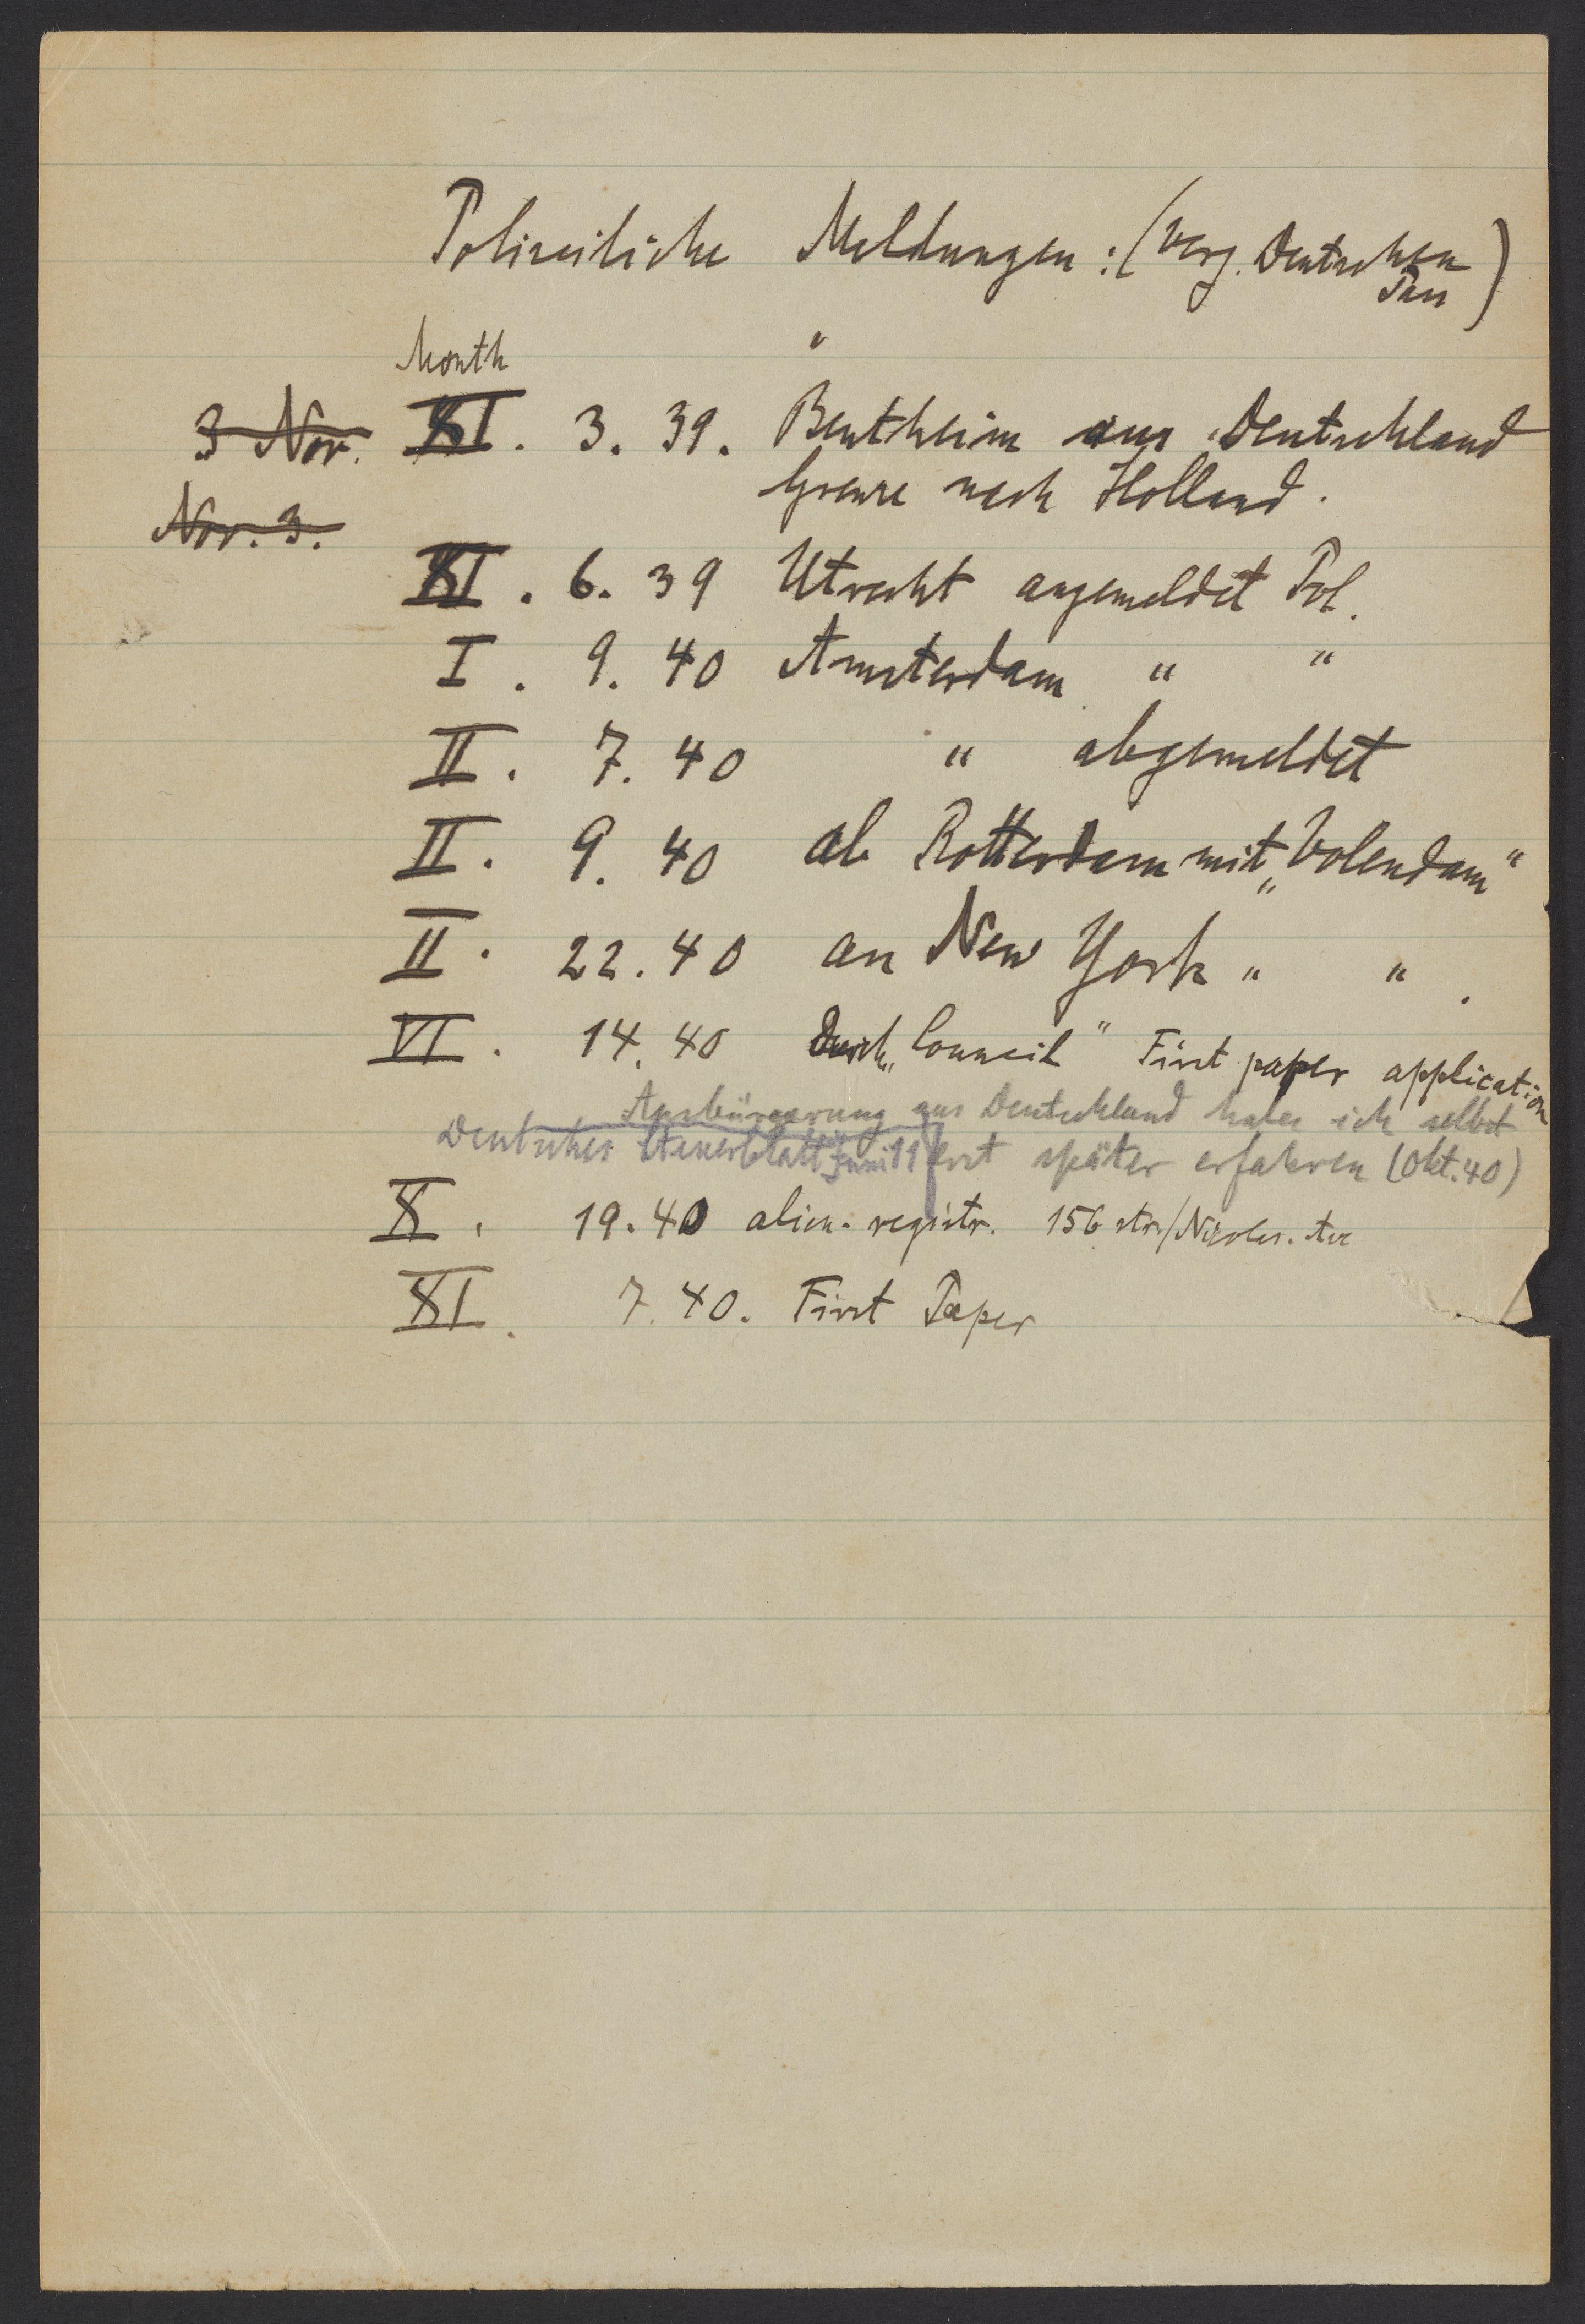 Polizeiliche Meldungen: (Verg. Deutschen
Pass)
Month "
3 Nov. XI. 3. 39. Bentheim aus Deutschland
Grenze nach Holland.
Nov. 3.
XI. 6. 39 Utrecht angemeldet Pol.
I. 9. 40 Amsterdam " "
II. 7. 40 " abgemeldet
II. 9. 40 ab Rotterdam mit „Volendam"
II. 22. 40 an New York " ".
VI. 14. 40 Durch „Council" First paper application
Ausbürgerung aus Deutschland habe ich selbst
Deutsches Steuerblatt Juni 11 erst später erfahren (Okt. 40)
X. 19. 40 alien. registr. 156 str/Nicolas. Ave
XI. 7. 40. First Paper